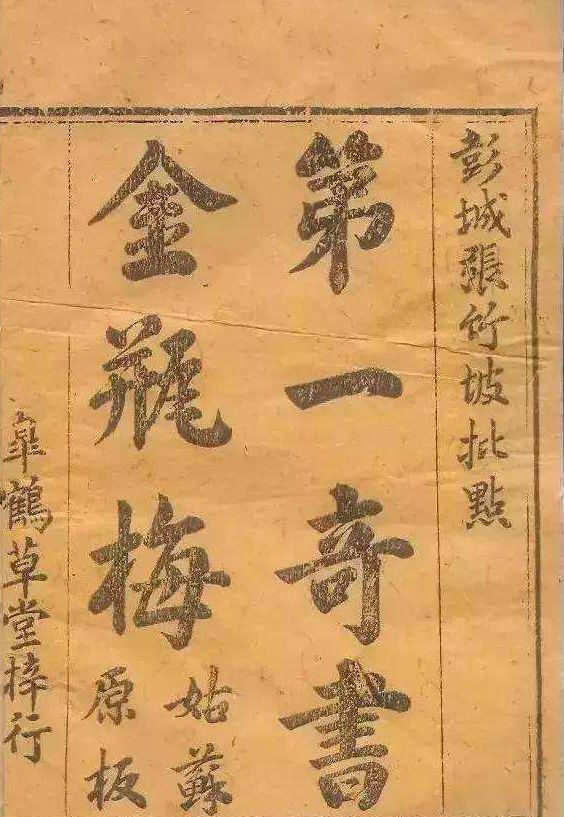 彭城張竹坡批點
第一奇書
金瓶梅
姑蘇
原板
皐鶴草堂梓行